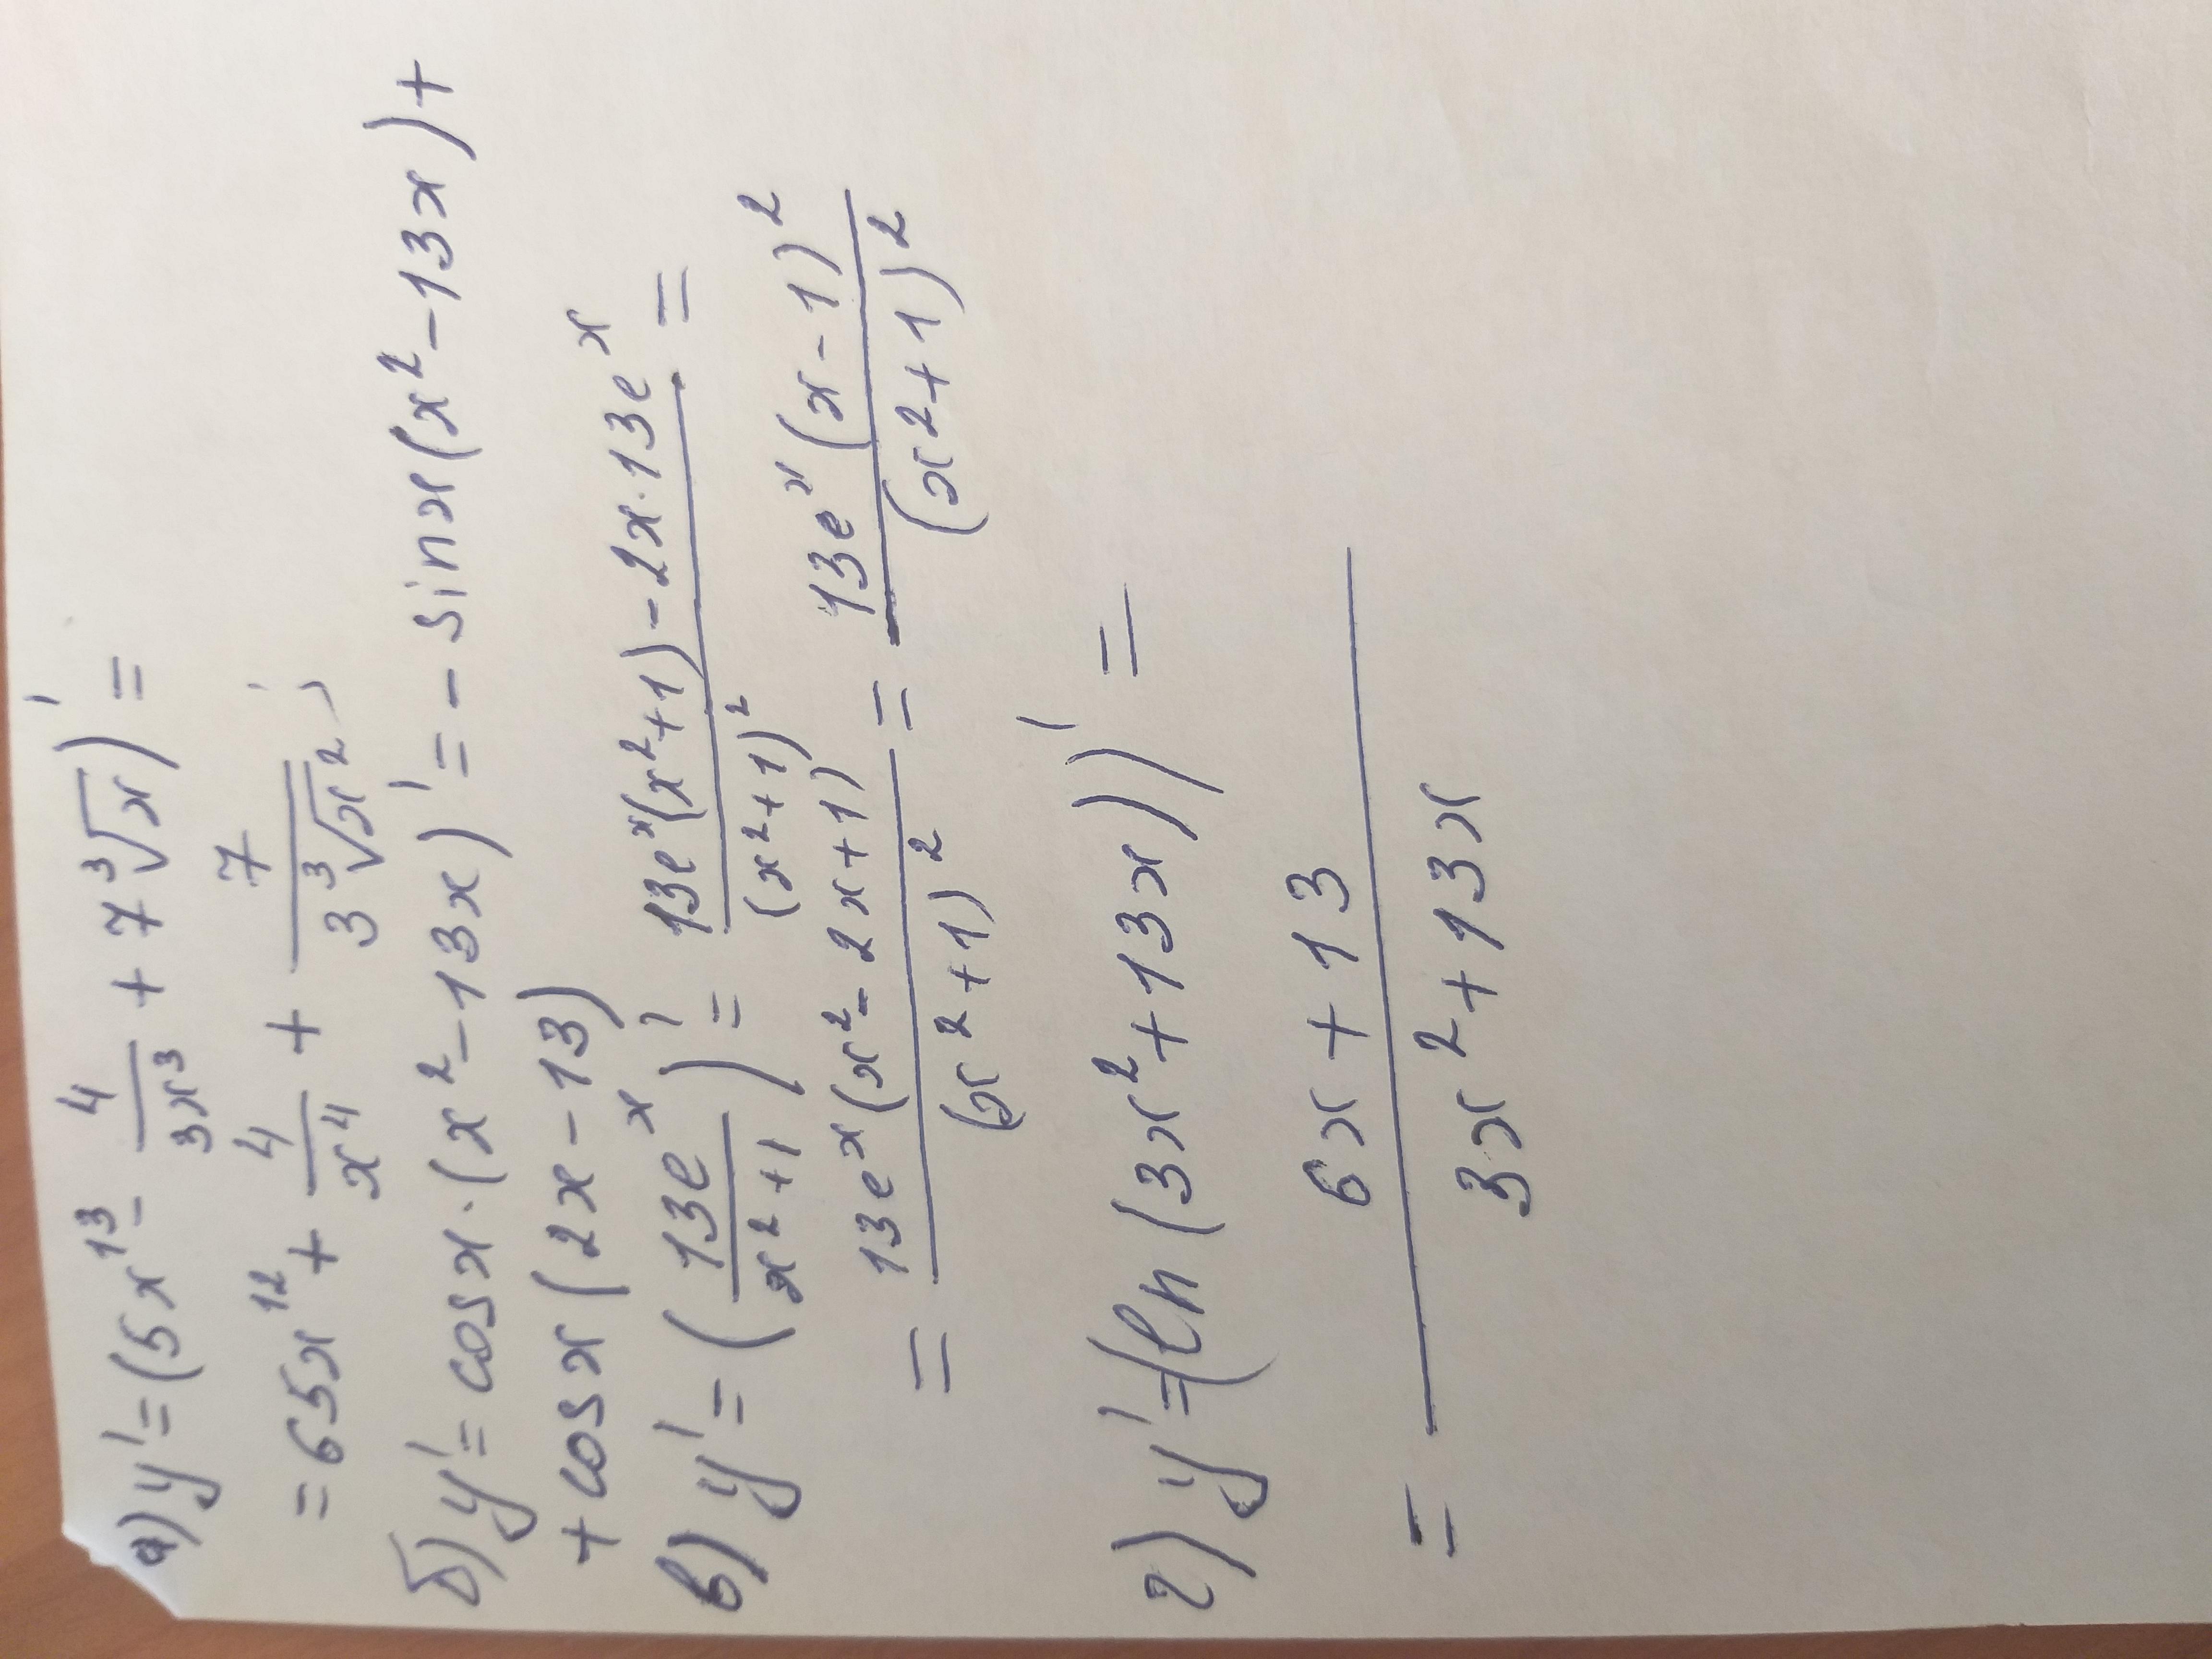 а) y' = (5x¹³ - 4/(3x³) + 7∛x)' =
= 65x¹² + 4/x⁴ + 7/(3∛x²) ;
б) y' = cosx·(x² - 13x)' = - sinx(x² - 13x) +
+ cosx(2x - 13)
в) y' = (13eˣ/(x² + 1))' = (13eˣ(x² + 1) - 2x·13eˣ)/(x² + 1)² =
= 13eˣ(x² - 2x + 1)/(x² + 1)² = 13eˣ(x - 1)²/(x² + 1)²
г) y' = (ln(3x² + 13x))' =
= (6x + 13)/(3x² + 13x)